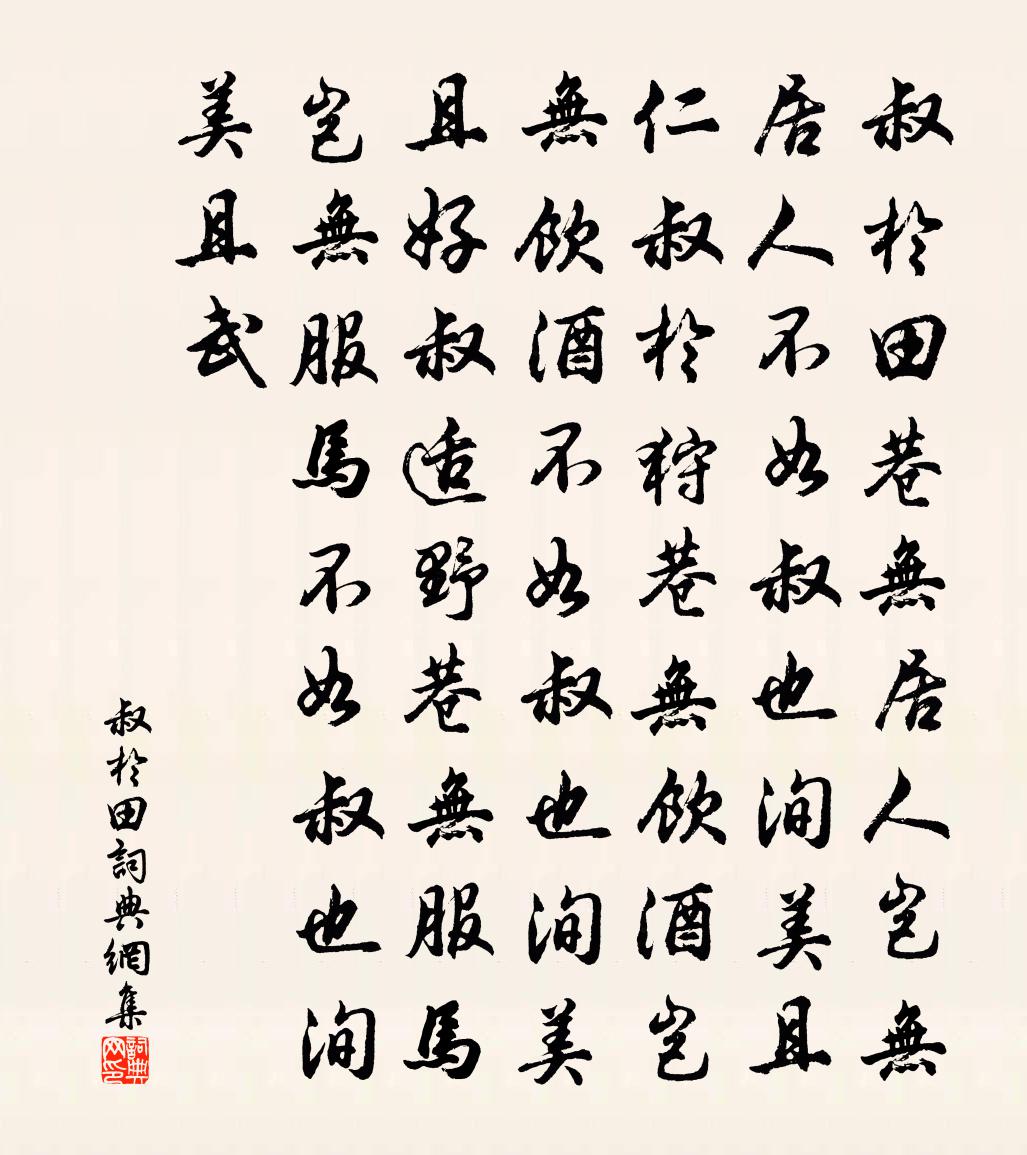 叔於田巷無居人豈無
居人不如叔也洵美且
仁叔於狩巷無飲酒豈
無飲酒不如叔也洵美
且好叔适野巷無服馬
豈無服馬不如叔也洵
美且武
叔於田詞典網集
詞典网印